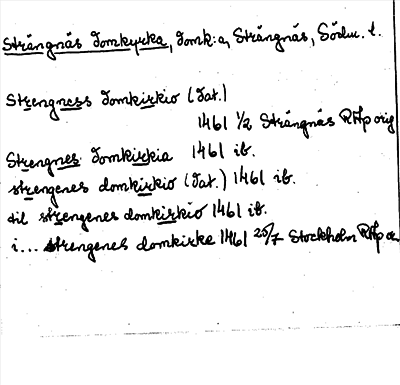 Strängnäs domkyrka, domk:a, Strängnäs, Södm. l.
Strengness domkirkio (dat.)
1461 1/2 Strängnäs RAp orig
Strengnes domkirkia 1461 ib.
strengenes domkirkio (dat.) 1461 ib.
til strengenes domkirkio 1461 ib.
i... strengenes domkirke 1461 25/7 Stockholm RAp or